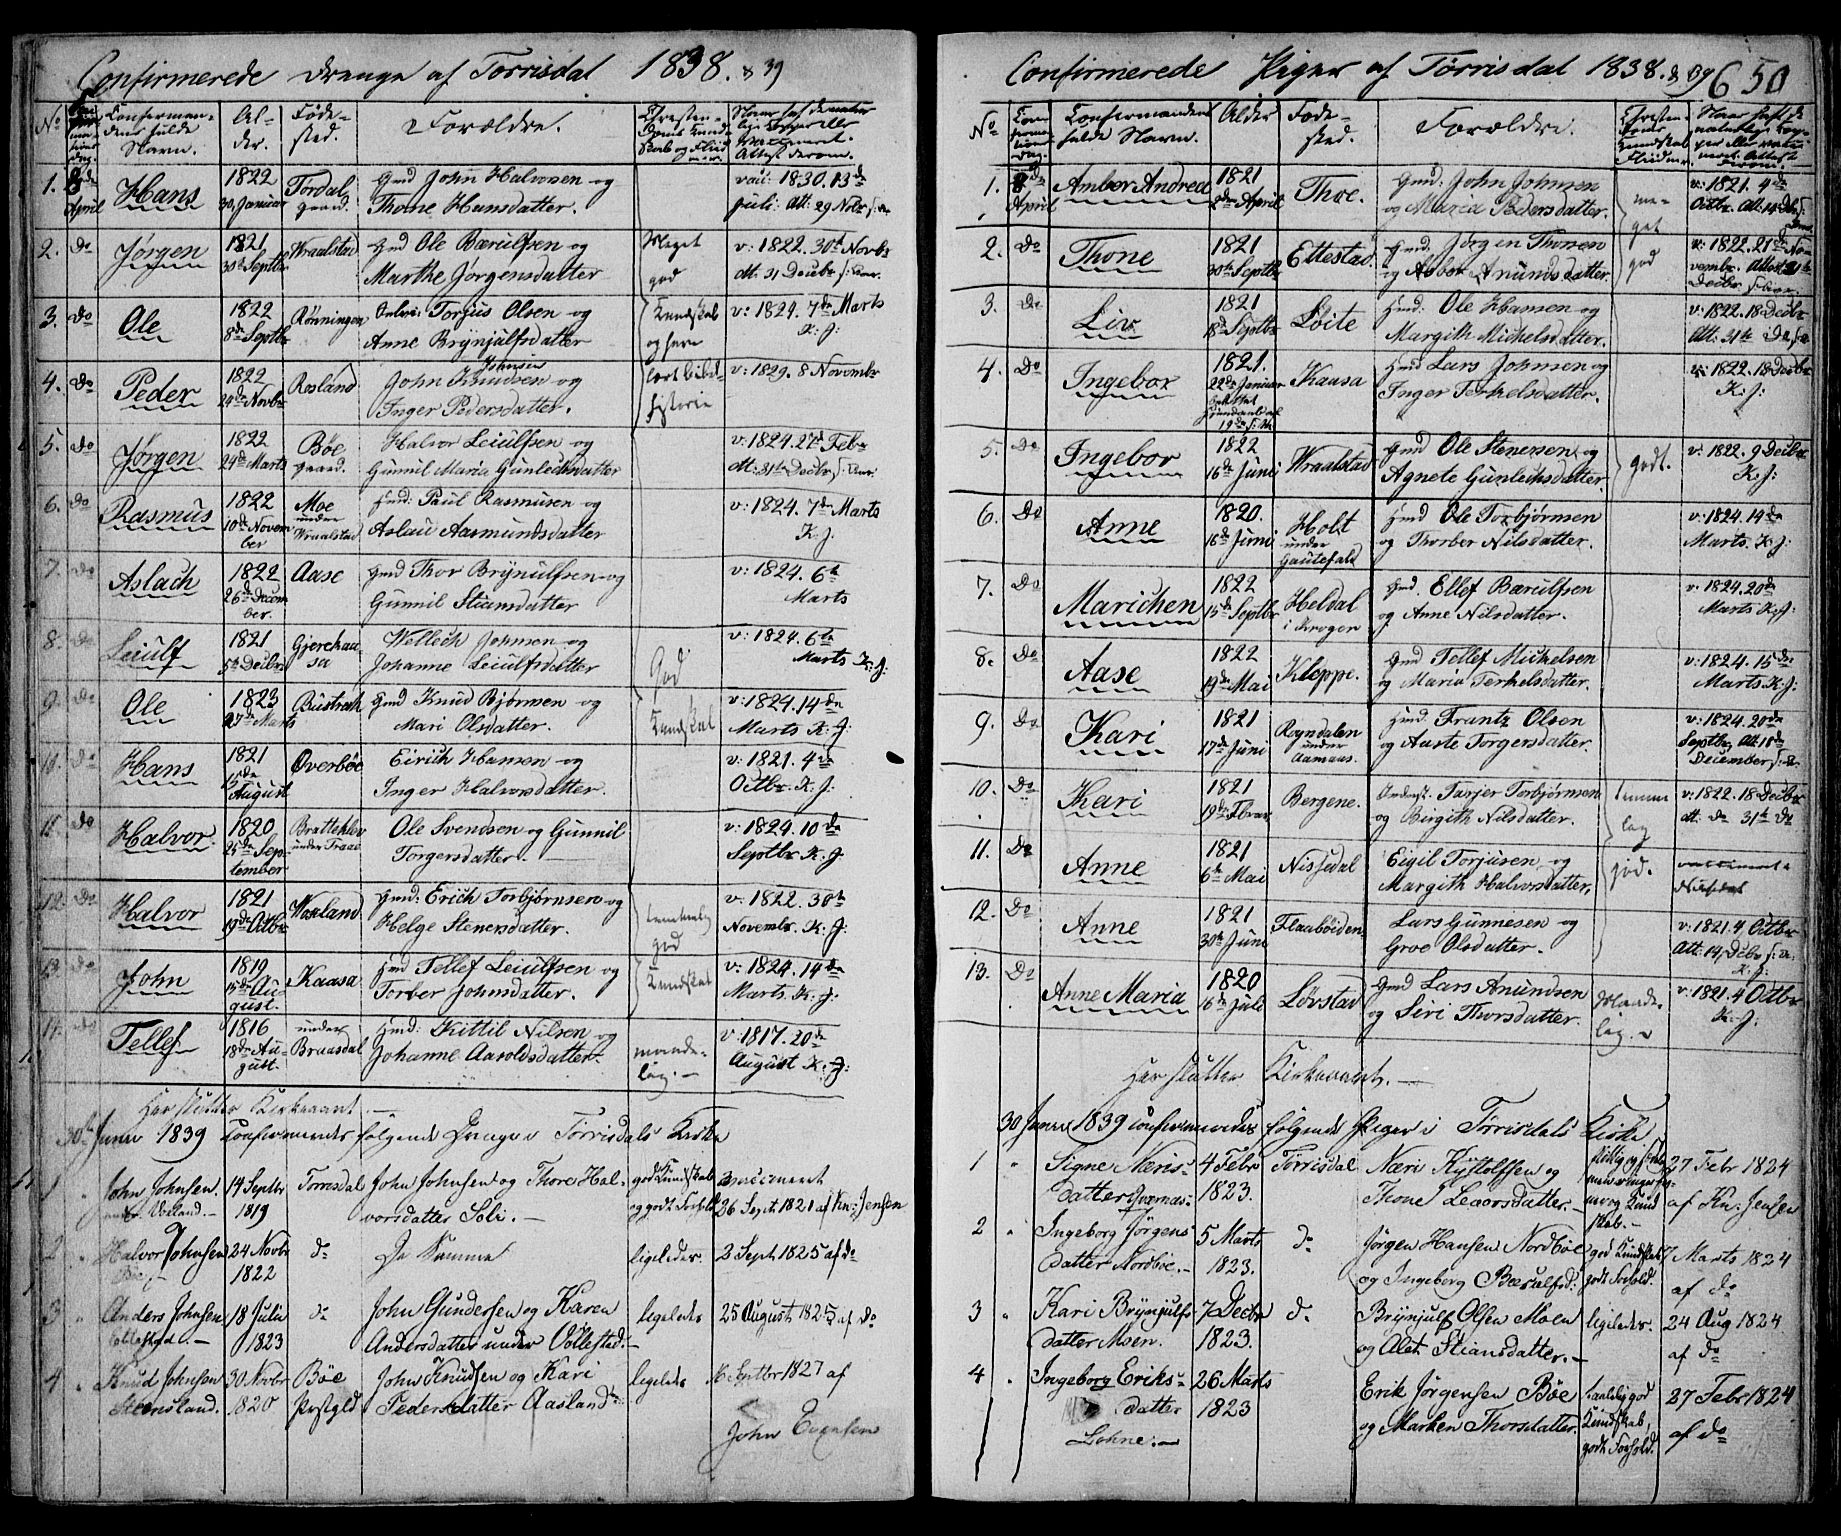 Confirmerede Drenge af Torrisdal 1838. & 39
No
Confirman-
dens fulde
Navn.
Al-
der.
Føde-
sted.
Forældre.
1. 8de April Hans 1822 30 Januar Tordal gaard. Gmd John Halvorsen og
Thone Hansdatter. vac: 1830. 13de
Juli: Att: 29 Nobr
2. Do Jørgen 1821 30te Septbr Wraalstad Gmd Ole Bærulfsen og
Marthe Jørgensdatter. Meget god v: 1822. 30te Novbr
Att. 31 Decbr
3. Do Ole 1822 8de Septbr Rønningen Torjus Olsen og
Anne Brynjulfsdatter Kundskab og v: 1824. 7de Marts
K. J:
4. Do Peder 1822 24de Novbr Rosland John Knudsen Johnsen og
Inger Pedersdatter. historie v: 1829. 8 Novembr
5. Do Jørgen 1822 24de Marts Bøe gaard. Halvor Leiulfsen og
Gunnil Maria Gunleiksdatter v: 1824. 27de Febr
Att: 31te Decbr
6. Do Rasmus 1822 10de November Moe under Wraalstad Gmd: Paul Rasmusen og
Aslau Aasmundsdatter v: 1824. 7de Marts
K. J.
7. Do Aslach 1822 26de December. Aase Gmd Thor Brynulfsen og
Gunnil Stiansdatter v: 1824. 6te
Marts
8. Do Leiulf 1821 5te Decbr Wellech Johnsen og
Johanne Leiulfsdatter God v: 1824. 6te
Marts K. J:
9. Do Ole 1823 27de Marts Bustrak Gmd Knud Bjørnsen og
Mari Olsdatter. Kundskab v: 1824. 14de
Marts K: J:
10. Do Hans 1821 August Øverbøe Eirich Hansen og
Inger Halvorsdatter. v: 1821. 4de
Octbr. K. J.
11. Do Halvor. 1820 25de September Bratteklev under Traae Ole Svendsen og Gunnil
Torgersdatter. v: 1824. 10de
Septbr K. J.
12. Do Halvor 1821 19de Octbr Waaland Gmd: Erich Torbjørnsen og
Helge Stenersdatter. temmelig god v: 1822. 30te
Novembr. K: J.
13. Do John 1819 15de August. Kaasa Gmd Tellef Leiulfsen og
Torber Johnsdatter. Kundskab v: 1824. 14de
Marts. K: J.
14. Do Tellef 1816 18de August. under Braasdal Gmd: Kittil Nilsen og
Johanne Aaroldsdatter. maade-
lig. v: 1817. 20de
August K. J:
Her slutter Kirkeaaret.
30te Junii 1839 confirmeredes følgende Drenge i Torrisdals Kirke
1 John Johnsen
under Voeland. 14 Septbr
1819 Torrisdal John Johnsen og Thore Hal-
vorsdatter Soli. god Kundskab
og godt Forhold vaccineret
26 Sept: 1821 af Kn: Jensen
2 Halvor Johnsen
24 Novbr
1822 do De Samme ligeledes. 2 Sept: 1825 af do
3 Anders Johnsen
18 Julii
1823 do John Gundersen og Karen
Andersdatter under Vøllestad. ligeledes 25 August 1825 af do
4 Knud Johnsen
Steensland. 30 Novbr
1820 Bøe
Præstgld John Knudsen og Kari
Pedersdatter Aasland ligeledes 16 Septbr 1827 af
John Evensen
Confirmerede Piger af Tørrisdal 1838. & 39 650
No
Confirmandens
fulde Navn.
Alder
Føde-
sted.
Forældre.
1. 8de April Amber Andrea 1821 2den April Thoe. Gmd: John Johnsen
og Maria Pedersdatter. me-
get
god v: 1821. 4de
Octbr. Att: 14 Dbr
2. Do Thone 1821 30te Septbr Ettestad. Gmd: Jørgen Thorsen
og Asbor Anundsdatter. v: 1822. 21de No-
vembr. Attest 31te
Decbr.
3. Do Liv 1821 18de Septbr Løite Gmd: Ole Hansen og
Margith Michelsdatter. v: 1822. 18 Decbr
Att: 31te Do
4. Do Ingebor 1821. 22de Januar Kaasa Gmd Lars Johnsen og
Inger Terkelsdatter. v: 1822. 18 Decbr
K. J:
5. Do Ingebor 1822 16de Junii Wraalstad Gmd Ole Stenersen og
Agnete Gunleiksdatter. godt. v: 1822. 9 Decbr
K. J:
6. Do Anne 1820. 16de Junii Holt under Gautefald Gmd Ole Torbjørnsen
og Thorber Nilsdatter. v: 1824. 14de
Marts. K. J:
7. Do Marichen 1822 15de Septbr Heldal i Krogen Gmd. Ellef Bærulfsen
og Anne Nilsdatter. v: 1824. 20de
Marts K. J:
8. Do Aase 1822 19de Mai Kleppe. Gmd Tellef Michelsen
og Maria Terkelsdatter. v: 1824. 15de
Marts. K. J:
9. Do Kari 1821 17de Juni Rogndalen under Aamaas. Gmd: Frantz Olsen
og Aaste Torgersdatter. v: 1824. 20de
Septbr Att: 18de
December
10. Do Kari 1821 19de Fbrar Bergene. Tarjer Torbjørnsen
og Birgith Nilsdatter. temme
lig v: 1822. 18 Decbr
att. do 31te do
11. Do Anne 1821 6te Mai Nissedal Eigil Torjusen og
Margith Halvorsdatter. god.
12. Do Anne 1821 30te Juni Flaabøiden Lars Gunnesen og
Groe Olsdatter. v: 1821. 4 Octbr
Att. 14 Debr
K: J:
13. Do Anne Maria 1820 16de Juli Løvstad Gmd Lars Anundsen
og Siri Thorsdatter. Maade-
lig. v: 1821. 4 Octbr
K. J:
Her slutter Kirkeaaret.
30 Junii 1839 confirmeredes følgende Piger i Tørrisdals Kirke
1 Signe Næris-
datter 4 Febr
1823. Torrisdal Næri Kystolfsen og
Thone Leaorsdatter. 27 Febr 1824
af Kn: Jensen
2 Ingeborg Jørgens
datter Nordbøe. 5 Marts
1823. do Jørgen Hansen Nordbøe
og Ingeborg Bærulfsd: god Kundskab
godt Forhold. 7 Marts 1824
af do
3 Kari Brynjulfs-
datter Moen. 7 Decbr
1823. do Brynjulf Olsen Moen
og Alet Stiansdatter. ligeledes. 24 Aug 1824
af do
4 Ingeborg Eriks-
datter
Lohne. 26 Marts
1823 Erik Jørgensen Bøe
og Marken Thorsdatter. taalelig god
Kundskab,
godt Forhold. 27 Febr 1824
af do